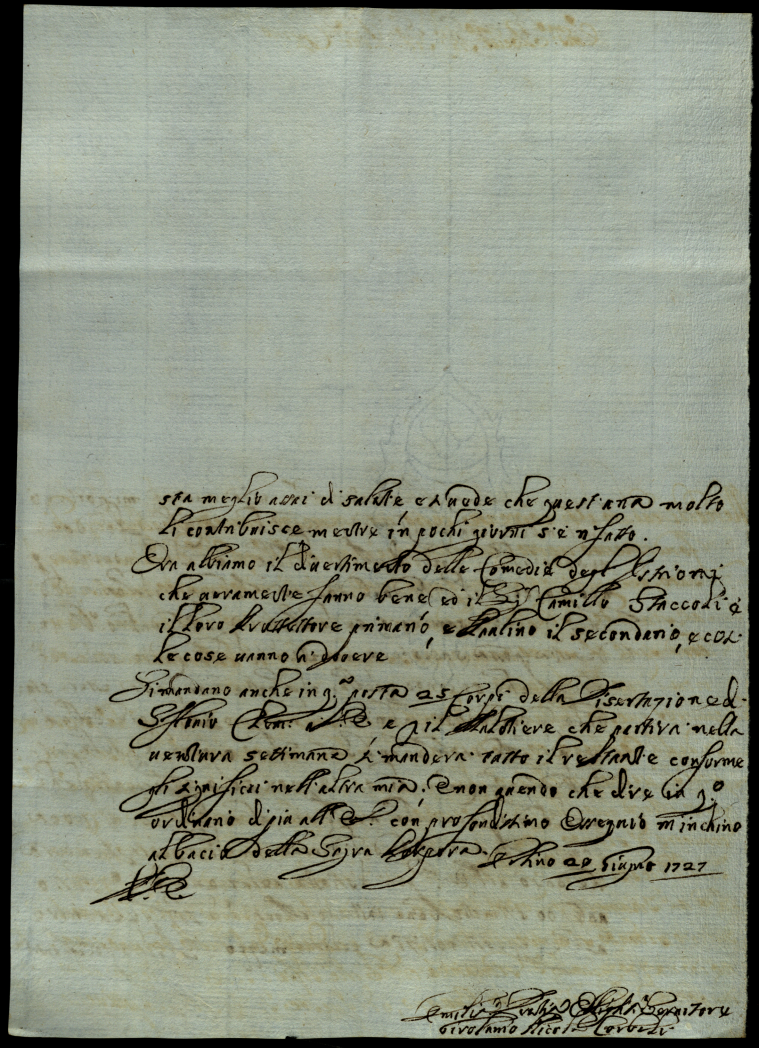 sta meglio assai di salute e si vede che quest'aria molto
li contribuisce mentre in pochi giorni s'è rifatto.
Ora abbiamo il divertimento delle Comedie degl'Istrioni
che veramente fanno bene, ed il Sig.r Camillo Staccoli è
il loro Protettore primario, e il secondario, e così
le cose vanno a dovere
Si mandano anche in q.a posta 25 Corpi della Disertazione di
e p il che partirà nella
ventura settimana si manderà tutto il restante conforme
gli significai nell'altra mia; E non avendo che dire in q.o
ordinario di più all' con profondissimo Ossequio m'inchino
al bacio della Sagra Porpora. Urbino 29 Giugno 1727
Servitore
Girolamo Nicolò